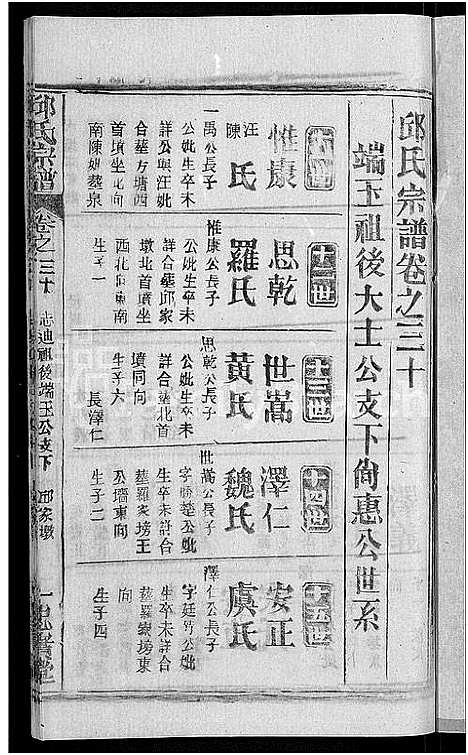 邱氏宗譜卷之三十
端玉祖後大士公支下尙惠公世系
十一世
惟康
汪陳氏
一禹公長子
公妣生卒未
詳公與汪妣
合葬方塘西
首墳坐北向
南陳妣葬泉
十二世
思乾
羅氏
惟康公長子
公妣生卒未
詳合葬邱家
墩北首墳坐
西北向東南
生子一
十三世
世嵩
黃氏
思乾公長子
公妣生卒未
詳合葬北首
墳同向
生子六
長澤仁
十四世
澤仁
魏氏
世嵩公長子
字勝楚公妣
生卒未詳合
葬羅家塝王
公墻東向
生子二
十五世
安正
虞氏
澤仁公長子
字廷芳公妣
生卒未詳合
葬羅家塝東
向
生子四
邱氏宗譜
卷之三十
志迪祖後端玉公支下
邱家墩
一